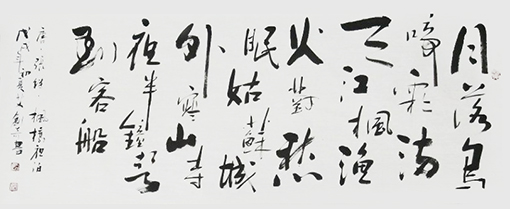 月落烏
啼霜滿
天江楓漁
火對愁
眠姑蘇城
外寒山寺
夜半鐘聲
到客船
唐張継楓橋夜泊
戊戌年
書